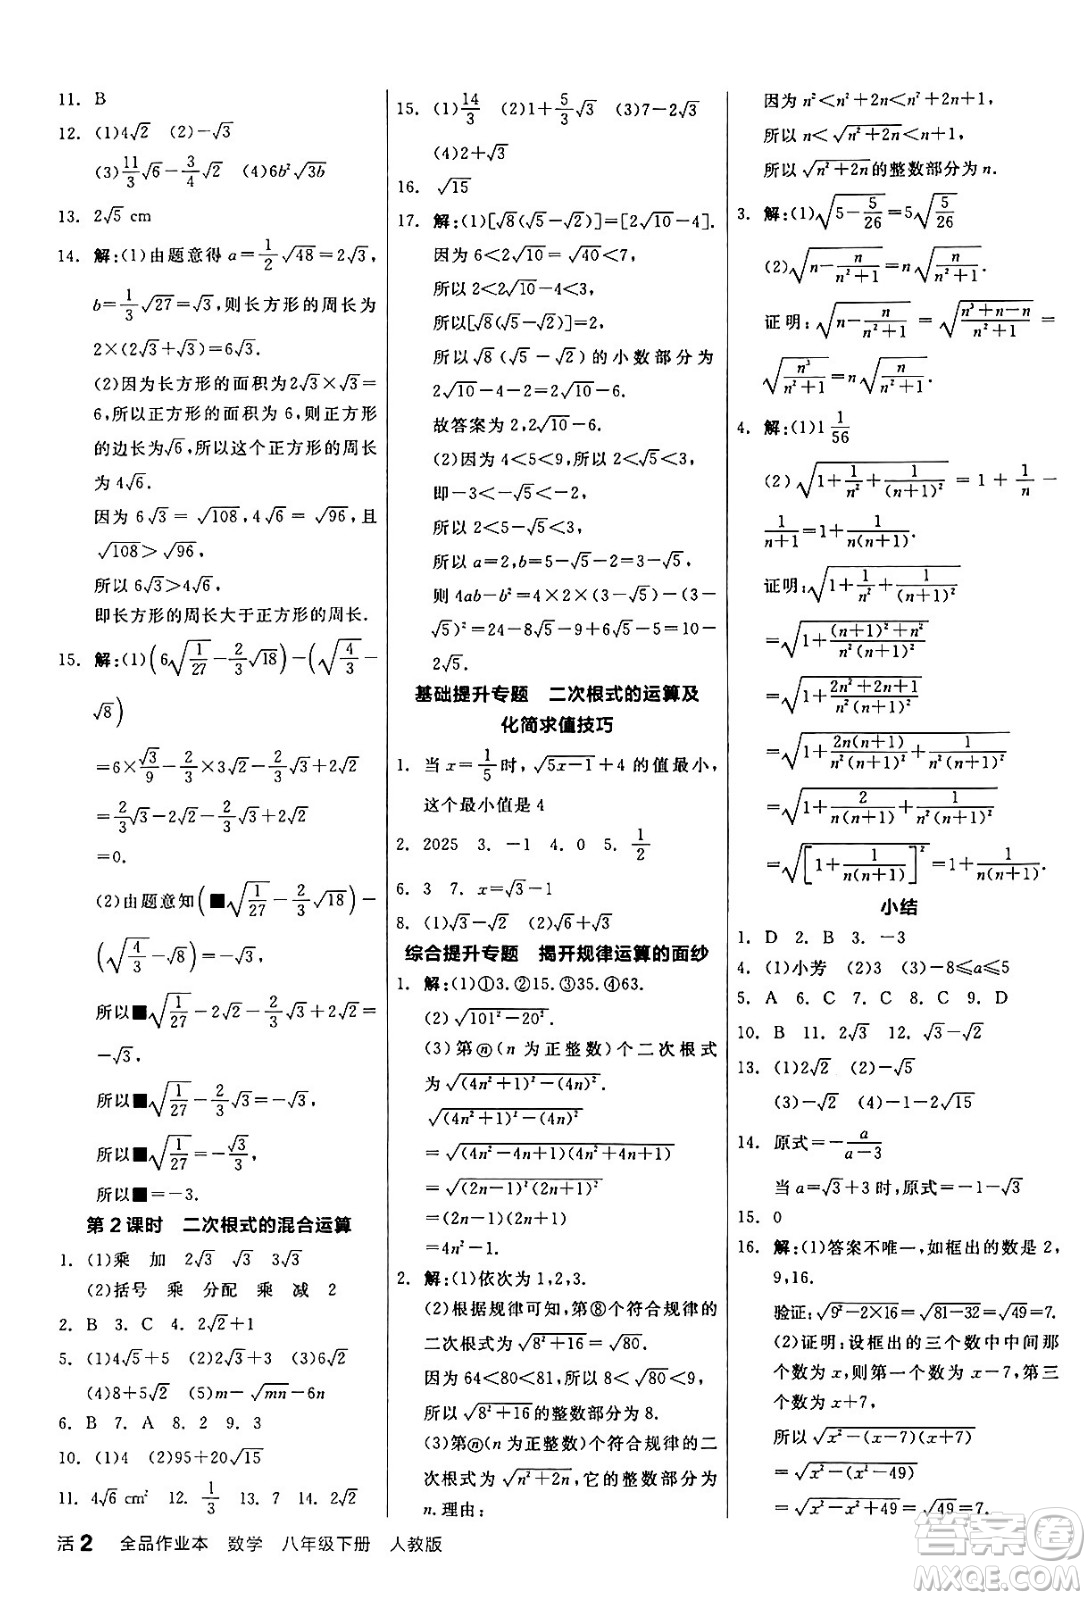 11. B
12. (1)4√2 (2)-√3
(3)11/3√6-3/4√2 (4)6b²√3b
13. 2√5 cm
14. 解:(1)由题意得a=1/2√48=2√3,
b=1/3√27=√3,则长方形的周长为
2×(2√3+√3)=6√3.
(2)因为长方形的面积为2√3×√3=
6,所以正方形的面积为6,则正方形
的边长为√6,所以这个正方形的周长
为4√6.
因为6√3=√108,4√6=√96,且
√108>√96,
所以6√3>4√6,
即长方形的周长大于正方形的周长.
15. 解:(1)(6√(1/27)-2/3√18)-(√(4/3)-
√8)
=6×√3/9-2/3×3√2-2/3√3+2√2
=2/3√3-2√2-2/3√3+2√2
=0.
(2)由题意知(■√(1/27)-2/3√18)-
(√(4/3)-√8)=-√3,
所以■√(1/27)-2√2-2/3√3+2√2=
-√3,
所以■√(1/27)-2/3√3=-√3,
所以■√(1/27)=-√3/3,
所以■=-3.
第2课时 二次根式的混合运算
1. (1)乘 加 2√3 √3 3√3
(2)括号 乘 分配 乘 减 2
2. B 3. C 4. 2√2+1
5. (1)4√5+5 (2)4√3 (3)6√2
(4)8+5√2 (5)m-√mn-6n
6. B 7. A 8. 2 9. 3
10. (1)4 (2)95+20√15
11. 4√6 cm² 12. 1/3 13. 7 14. 2√2
活2 全品作业本 数学 八年级下册 人教版
15. (1)14/3 (2)1+5/3√3 (3)7-2√3
(4)2+√3
16. √15
17. 解:(1)[√8(√5-√2)]=[2√10-4].
因为6<2√10=√40<7,
所以2<2√10-4<3,
所以[√8(√5-√2)]=2,
所以√8(√5-√2)的小数部分为
2√10-4-2=2√10-6.
故答案为2,2√10-6.
(2)因为4<5<9,所以2<√5<3,
即-3<-√5<-2,
所以2<5-√5<3,
所以a=2,b=5-√5-2=3-√5,
则4ab-b²=4×2×(3-√5)-(3-
√5)²=24-8√5-9+6√5-5=10-
2√5.
基础提升专题 二次根式的运算及
化简求值技巧
1. 当x=1/5时,√(5x-1)+4的值最小,
这个最小值是4
2. 2025 3. -1 4. 0 5. 1/2
6. 3 7. x=√3-1
8. (1)√3-√2 (2)√6+√3
综合提升专题 揭开规律运算的面纱
1. 解:(1)①3.②15.③35.④63.
(2)√(101²-20²).
(3)第ⓝ(n为正整数)个二次根式
为√((4n²+1)²-(4n)²).
√((4n²+1)²-(4n)²)
=√((4n²-4n+1)(4n²+4n+1))
=√((2n-1)²(2n+1)²)
=(2n-1)(2n+1)
=4n²-1.
2. 解:(1)依次为1,2,3.
(2)根据规律可知,第⑧个符合规律的
二次根式为√(8²+16)=√80.
因为64<80<81,所以8<√80<9,
所以√(8²+16)的整数部分为8.
(3)第ⓝ(n为正整数)个符合规律的二
次根式为√(n²+2n),它的整数部分为
n.理由:
因为n²<n²+2n<n²+2n+1,
所以n<√(n²+2n)<n+1,
所以√(n²+2n)的整数部分为n.
3. 解:(1)√(5-5/26)=5√(5/26)
(2)√(n-n/(n²+1))=n√(n/(n²+1)).
证明:√(n-n/(n²+1))=√((n³+n-n)/(n²+1))=
√(n³/(n²+1))=n√(n/(n²+1)).
4. 解:(1)1 1/56
(2)√(1+1/n²+1/(n+1)²)=1+1/n-
1/(n+1)=1+1/(n(n+1)).
证明:√(1+1/n²+1/(n+1)²)
=√(1+((n+1)²+n²)/(n²(n+1)²))
=√(1+(2n²+2n+1)/(n²(n+1)²))
=√(1+2n(n+1)/(n²(n+1)²)+1/(n²(n+1)²))
=√(1+2/(n(n+1))+1/(n²(n+1)²))
=√([1+1/(n(n+1))]²)=1+1/(n(n+1)).
小结
1. D 2. B 3. -3
4. (1)小芳 (2)3 (3)-8≤a≤5
5. A 6. C 7. C 8. C 9. D
10. B 11. 2√3 12. √3-√2
13. (1)2√2 (2)4√3
(3)-√2 (4)-1-2√15
14. 原式=-a/(a-3)
当a=√3+3时,原式=-1-√3
15. 0
16. 解:(1)答案不唯一,如框出的数是2,
9,16.
验证:√(9²-2×16)=√(81-32)=√49=7.
(2)证明:设框出的三个数中中间那
个数为x,则第一个数为x-7,第三
个数为x+7,
所以√(x²-(x-7)(x+7))
=√(x²-(x²-49))
=√(x²-x²+49)=√49=7.
答案圈
MXQE.COM